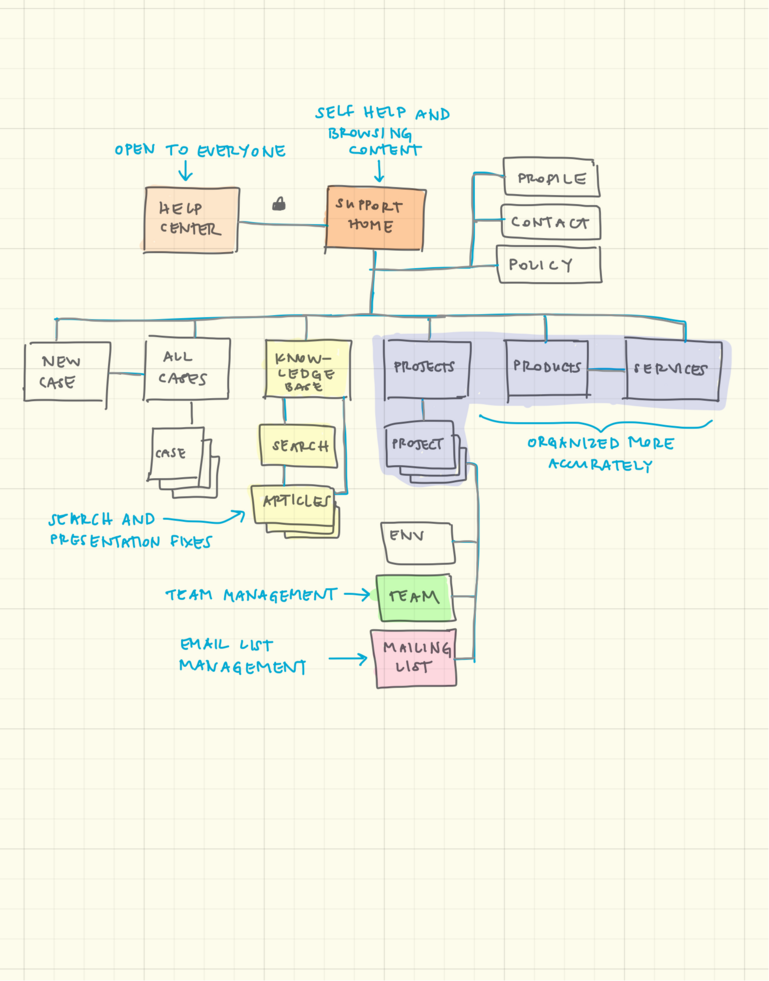 SELF HELP AND
BROWSING
CONTENT
OPEN TO EVERYONE
HELP
CENTER
SUPPORT
HOME
PROFILE
CONTACT
POLICY
NEW
CASE
ALL
CASES
KNOW-
LEDGE
BASE
PROJECTS
PRODUCTS
SERVICES
CASE
SEARCH
PROJECT
ORGANIZED MORE
ACCURATELY
ARTICLES
SEARCH AND
PRESENTATION FIXES
ENV
TEAM MANAGEMENT
TEAM
EMAIL LIST
MANAGEMENT
MAILING
LIST